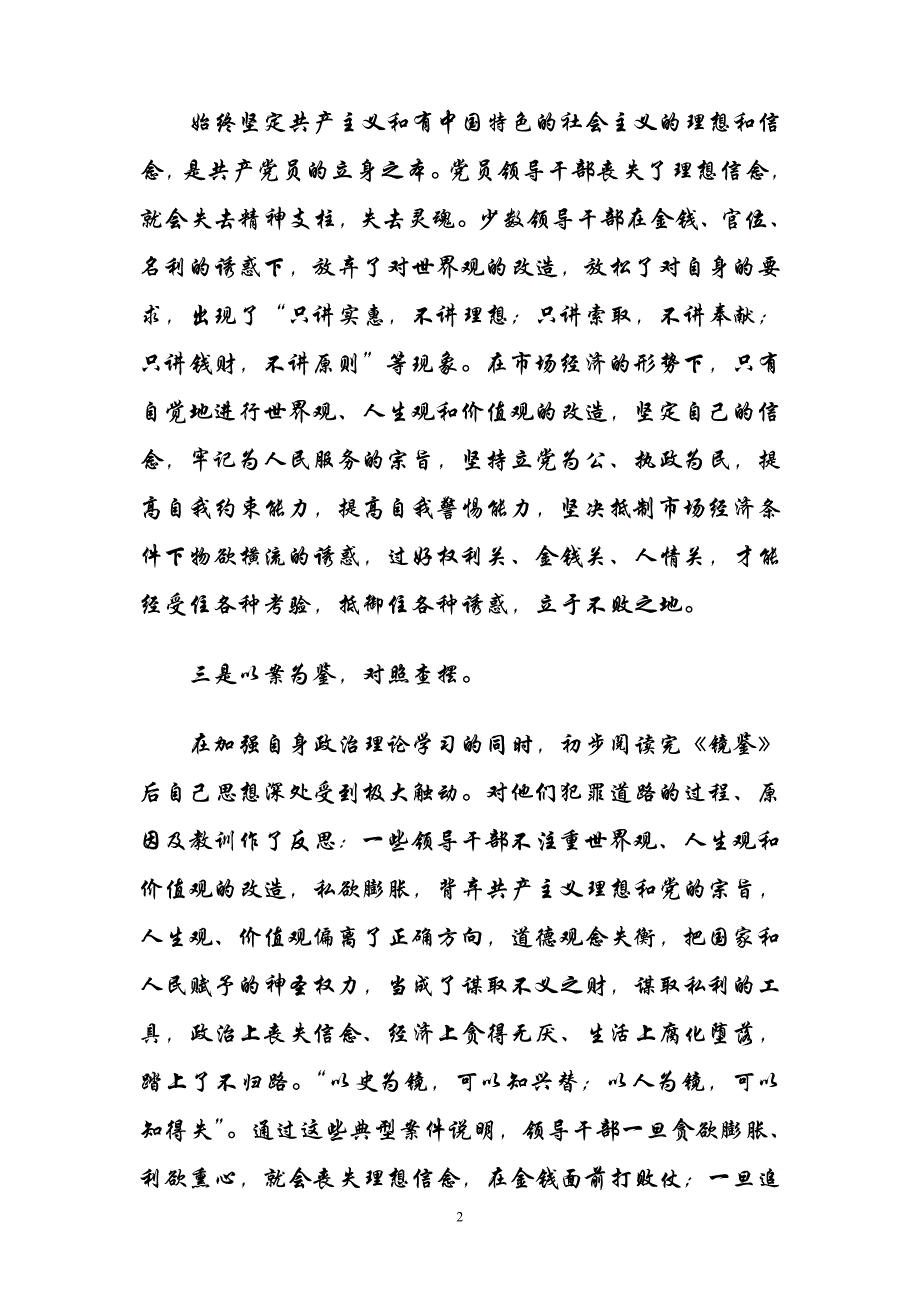 始终坚定共产主义和有中国特色的社会主义的理想和信
念，是共产党员的立身之本。党员领导干部丧失了理想信念，
就会失去精神支柱，失去灵魂。少数领导干部在金钱、官位、
名利的诱惑下，放弃了对世界观的改造，放松了对自身的要
求，出现了“只讲实惠，不讲理想；只讲索取，不讲奉献；
只讲钱财，不讲原则”等现象。在市场经济的形势下，只有
自觉地进行世界观、人生观和价值观的改造，坚定自己的信
念，牢记为人民服务的宗旨，坚持立党为公、执政为民，提
高自我约束能力，提高自我警惕能力，坚决抵制市场经济条
件下物欲横流的诱惑，过好权利关、金钱关、人情关，才能
经受住各种考验，抵御住各种诱惑，立于不败之地。
三是以案为鉴，对照查摆。
在加强自身政治理论学习的同时，初步阅读完《镜鉴》
后自己思想深处受到极大触动。对他们犯罪道路的过程、原
因及教训作了反思：一些领导干部不注重世界观、人生观和
价值观的改造，私欲膨胀，背弃共产主义理想和党的宗旨，
人生观、价值观偏离了正确方向，道德观念失衡，把国家和
人民赋予的神圣权力，当成了谋取不义之财，谋取私利的工
具，政治上丧失信念、经济上贪得无厌、生活上腐化堕落，
踏上了不归路。“以史为镜，可以知兴替；以人为镜，可以
知得失”。通过这些典型案件说明，领导干部一旦贪欲膨胀、
利欲熏心，就会丧失理想信念，在金钱面前打败仗；一旦追
2